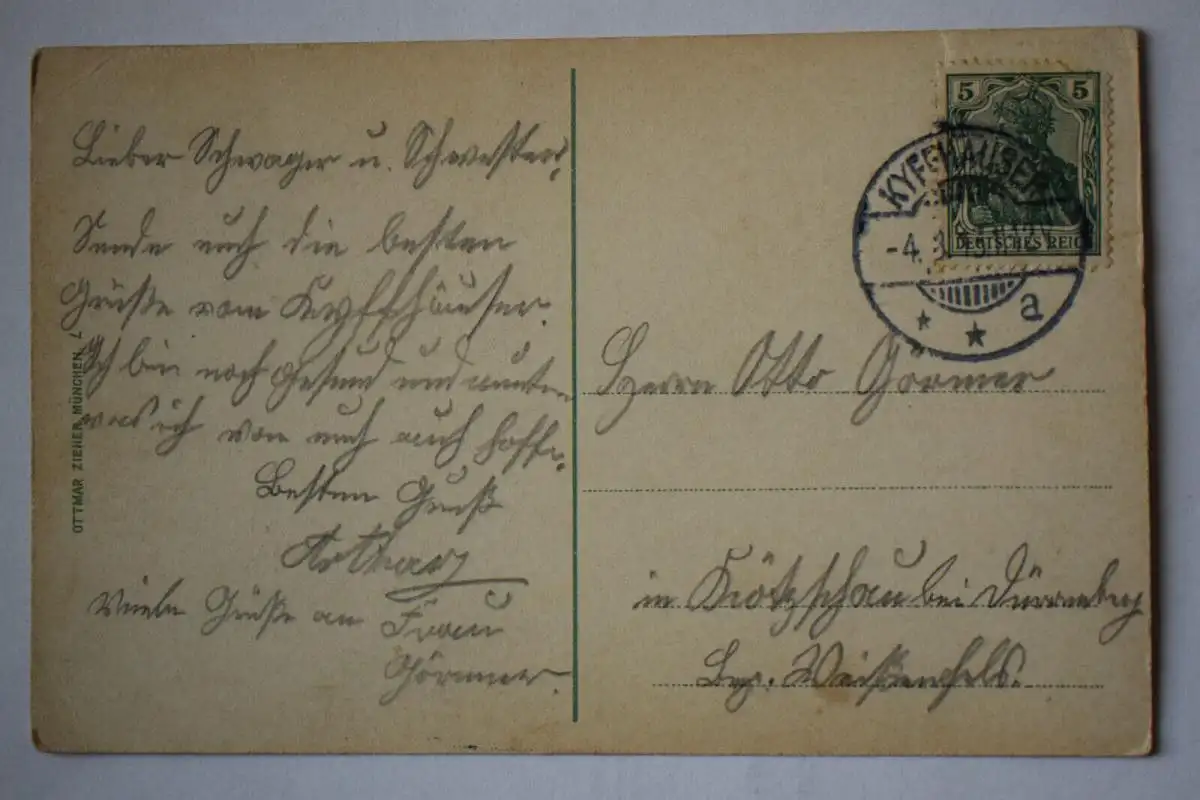 Lieber Schwager u. Schwester!
Sende euch die besten
Grüße vom Kyffhäuser.
Ich bin noch gesund und munter
was ich von euch auch hoffe.
Besten Gruß
Arthur
Viele Grüße an Frau
Görmer.
OTTMAR ZIEHER, MÜNCHEN. L
5 5
DEUTSCHES REICH
KYFFHÄUSER
-4. 8.
a
Herrn Otto Görmer
in Kötzschau bei Dürrenberg
Bez. Weißenfels.